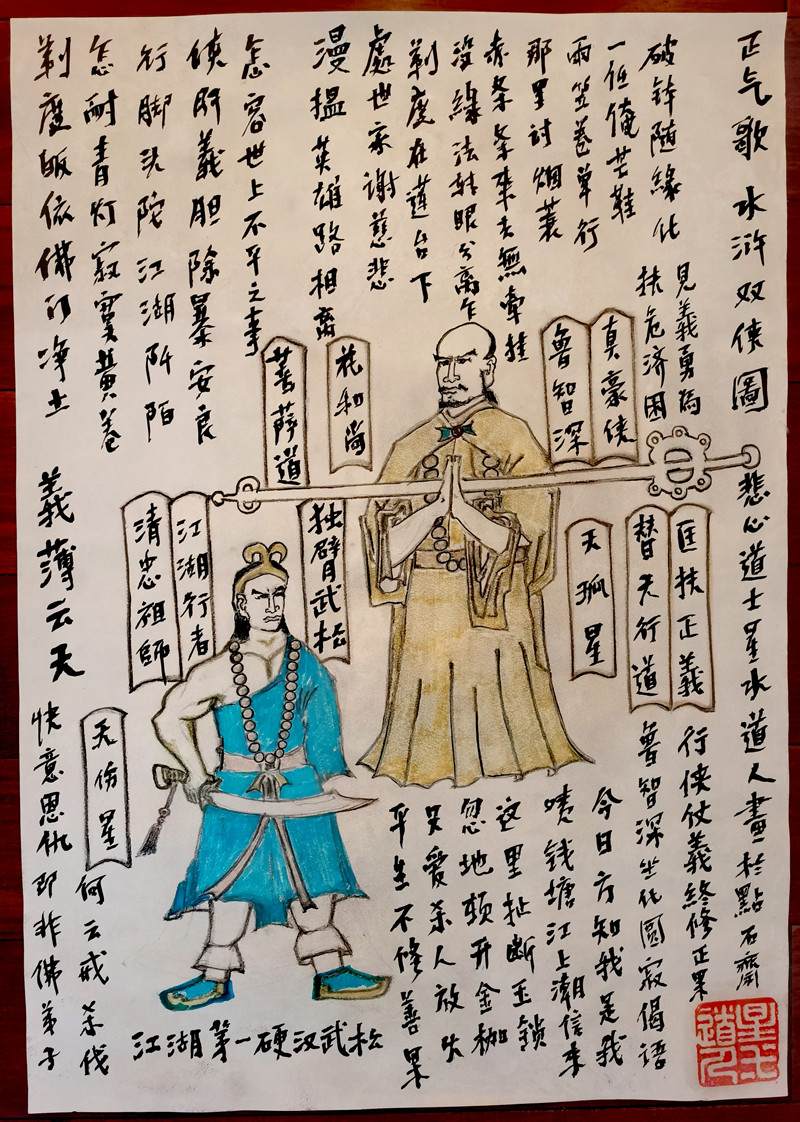 正气歌 水浒双侠圖
悲心道士星水道人畫於點石齋
見義勇為
扶危济困
真豪俠
魯智深
花和尚
菩萨道
匡扶正義
替天行道
天孤星
行侠仗義終修正果
漫揾英雄路相离
處世家谢慈悲
剃度在蓮台下
没緣法转眼分离乍
赤条条来去無牵挂
那里讨烟蓑
雨笠卷单行
一任俺芒鞋
破钵随緣化
怎容世上不平之事
侠肝義胆除暴安良
行脚头陀江湖阡陌
怎耐青灯寂寞黄卷
剃度皈依佛门净土
独臂武松
江湖行者
清忠祖師
義薄云天
天伤星
快意恩仇即非佛弟子
何云戒杀伐
江湖第一硬汉武松
魯智深坐化圆寂偈語
平生不修善果
只爱杀人放火
忽地顿开金枷
这里扯断玉锁
咦钱塘江上潮信来
今日方知我是我